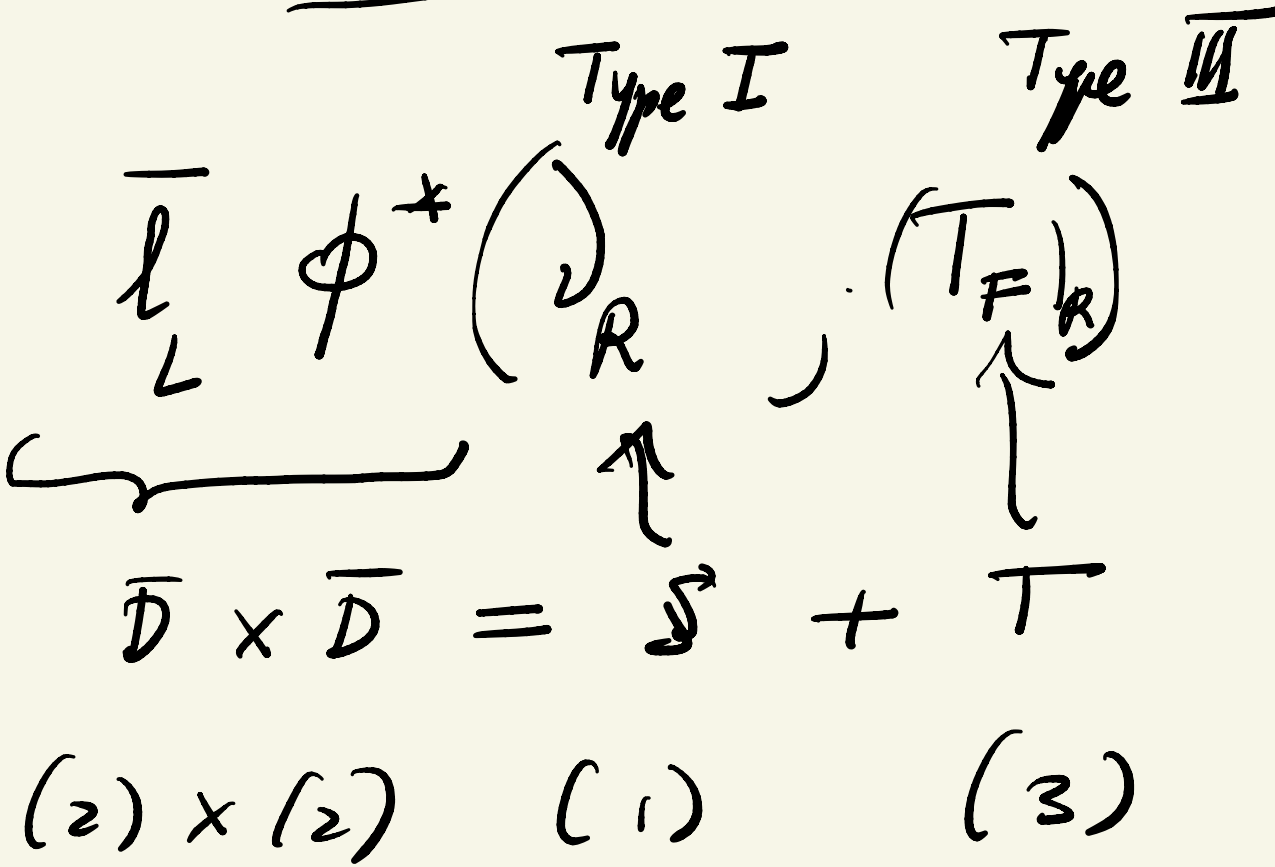 Type I Type III
l̅_L ϕ^* (ν_R , (T_F)_R)
D̅ × D̅ = S + T
(2) × (2) (1) (3)